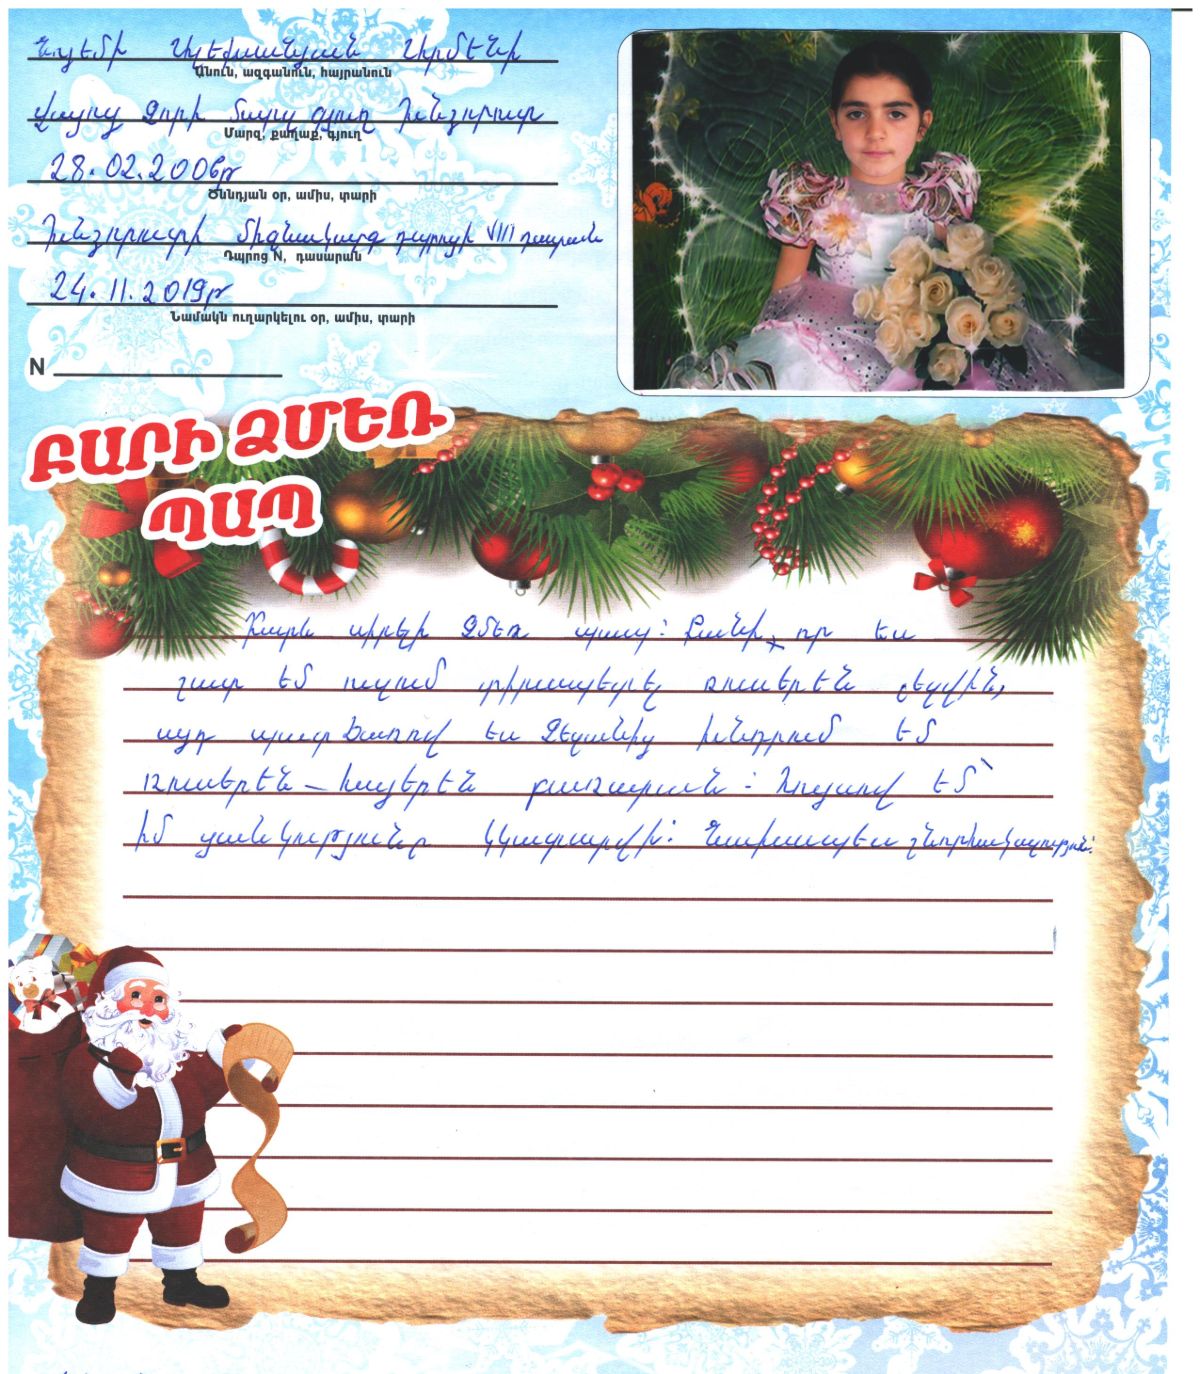 Նոյեմի Ալեքսանյան Արմենի
Անուն, ազգանուն, հայրանուն
Վայոց Ձորի մարզ գյուղ Խնձորուտ
Մարզ, քաղաք, գյուղ
28.02.2006թ
Ծննդյան օր, ամիս, տարի
Խնձորուտի միջնակարգ դպրոցի VIII դասարան
Դպրոց N, դասարան
24.11.2019թ
Նամակն ուղարկելու օր, ամիս, տարի
N
ԲԱՐԻ ՁՄԵՌ
ՊԱՊ
Բարև սիրելի Ձմեռ պապ: Քանի որ ես
շատ եմ ուզում տիրապետել ռուսերեն լեզվին,
այդ պատճառով ես Ձեզանից խնդրում եմ
ռուսերեն – հայերեն բառարան: Հուսով եմ՝
իմ ցանկությունը կկատարվի: Նախապես շնորհակալություն: